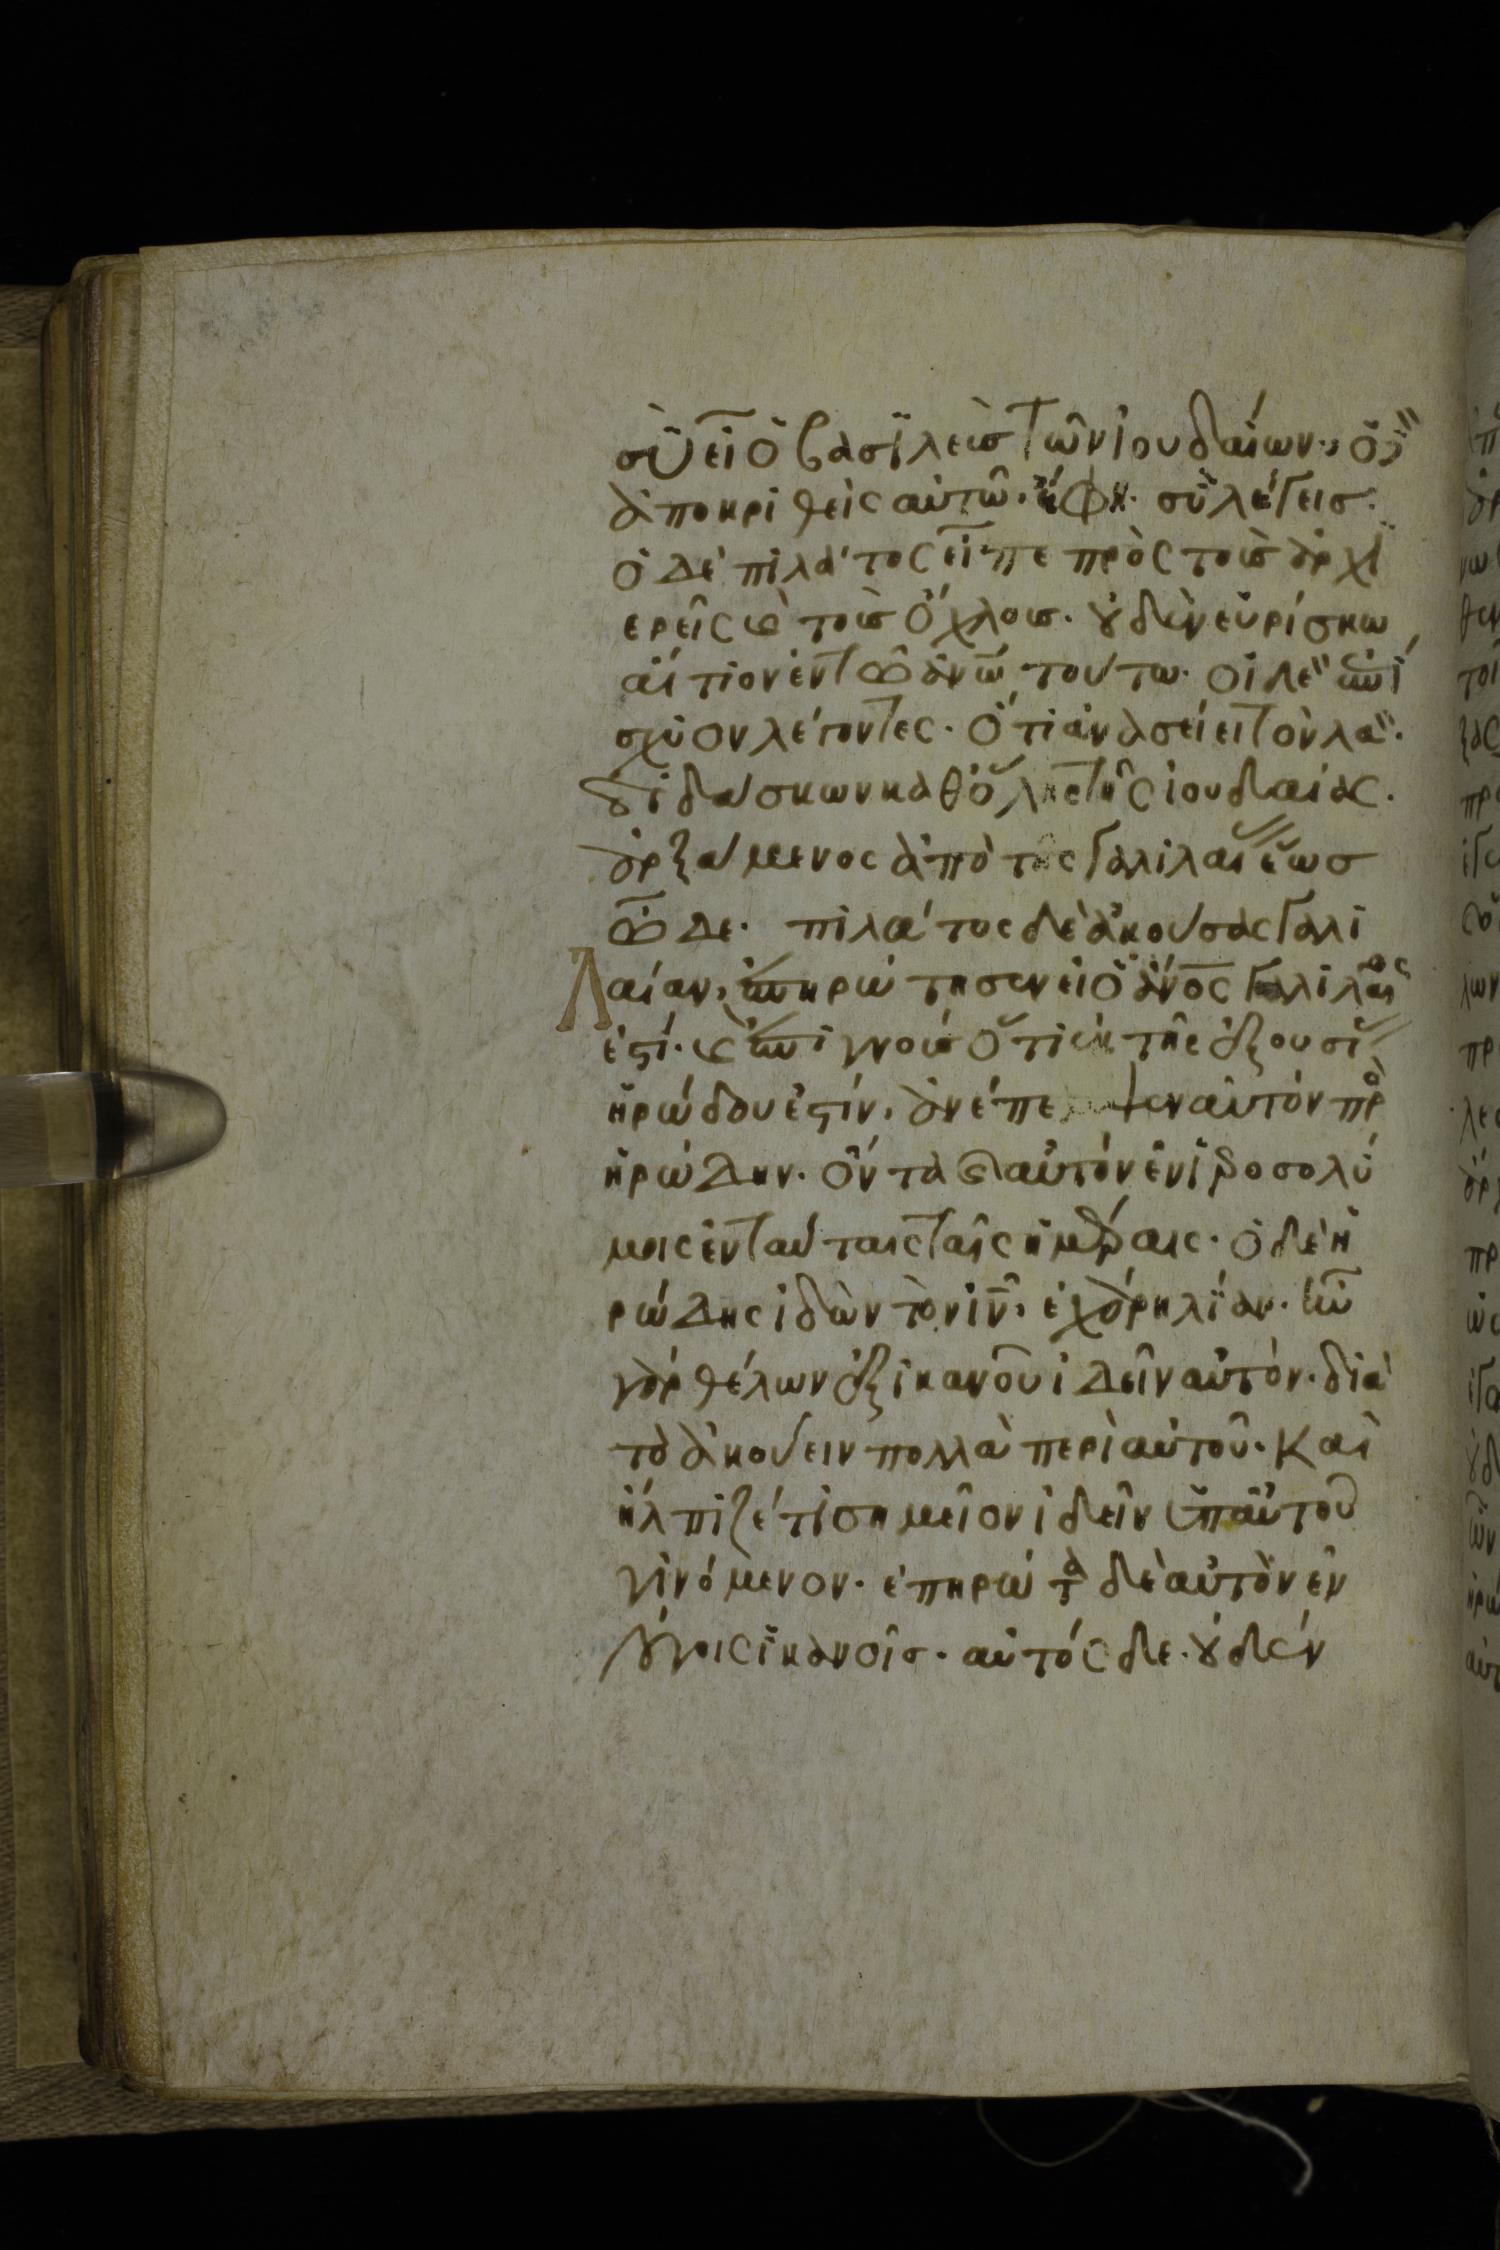 σὺ εἶ ὁ βασϊλεὺσ τῶν ἰουδαίων· ὁ δὲ
ἀποκριθεὶς αὐτῶ· ἔφη· σὺ λέγεισ·
ὁ δὲ πιλάτος εἶπε πρὸς τοὺσ ἀρχϊ
ερεῖς καὶ τοὺσ ὄχλουσ· οὐδὲν εὑρίσκω
αἴτιον ἐν τῶ ἀνω τούτω· οἱ δὲ ἐπί
σχυον λέγοντες· ὅτι ἀνασείει τὸν λαὸν·
διδάσκων καθ ὅλης τῆς ἰουδαίας·
ἀρξάμενος ἀπὸ τῆς γαλιλαίας ἕωσ
ὧδε· πιλάτος δὲ ἀκούσας γαλι
λαίαν, ἐπηρώτησεν εἰ ὁ ἀνος γαλιλαῖός
ἐστί· καὶ ἐπιγνοὺσ ὅτι ἐκ τῆς ἐξουσίας
ἡρώδου ἐστίν, ἀνέπεμψεν αὐτὸν πρὸς
ἡρώδην· ὄντα καὶ αὐτὸν ἐν ἱεροσολύ
μοις ἐν ταύταις ταῖς ἡμέραις· ὁ δὲ ἡ
ρώδης ἰδὼν τὸν ιν, ἐχάρη λίαν· ἦν
γὰρ θέλων ἐξ ἱκανοῦ ἰδεῖν αὐτὸν· διὰ
τὸ ἀκούειν πολλὰ περὶ αὐτοῦ· καὶ
ἤλπιζέ τι σημεῖον ἰδεῖν ὑπ αὐτοῦ
γινόμενον· ἐπηρώτα δὲ αὐτὸν ἐν
λόγοις ἱκανοῖσ· αὐτὸς δὲ· οὐδὲν